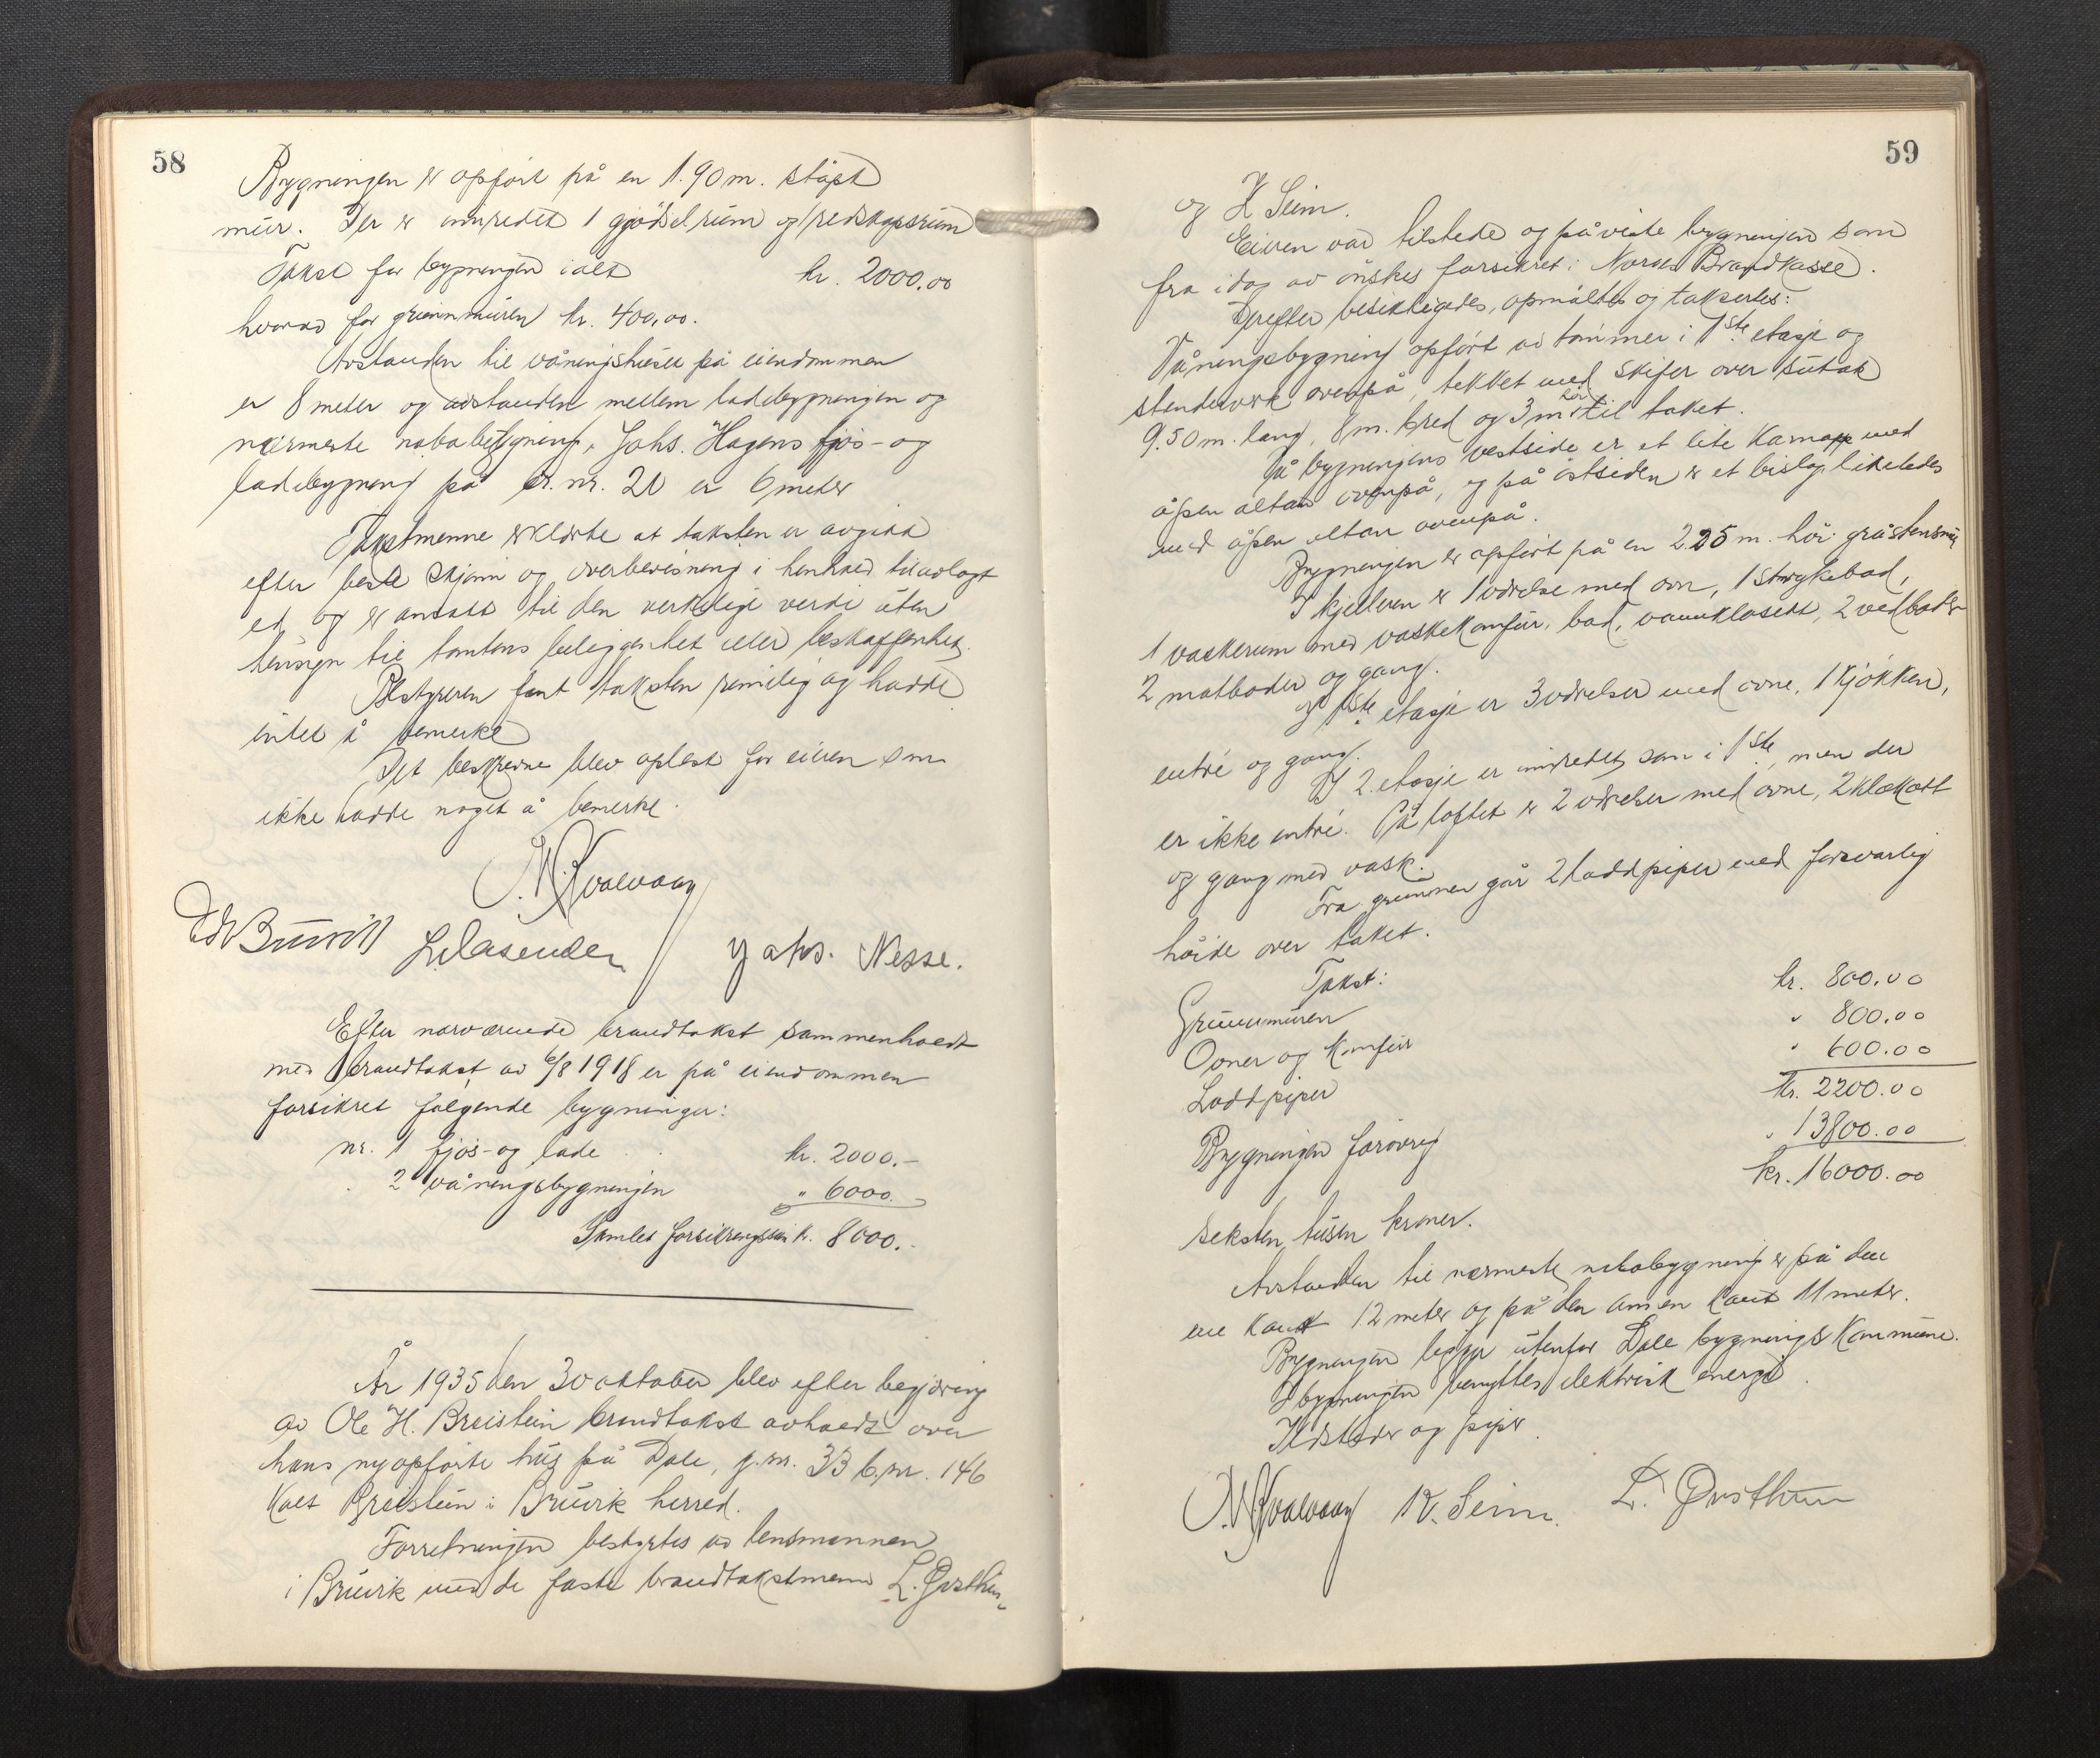 58
Bygningen er opført på en 1.90 m. støpt
mur. Der er innredet 1 gjødselrum og 1 redskapsrum
Takst for bygningen ialt kr. 2000.00
hvorav for grunnmuren kr. 400,00.
Avstanden til våningshuset på eiendommen
er 8 meter og avstanden mellem ladebygningen og
nærmeste nabobebygning, Johs. Hagens fjøs- og
ladebygning på br. nr. 20 er 6 meter
Takstmenne erklærte at taksten er avgitt
efter beste skjønn og overbevisning i henhold til avlagt
ed og er ansatt til den verkelige verdi uten
hensyn til tomtens beliggenhet eller beskaffenhet.
Bestyreren fant taksten rimelig og hadde
intet å bemerke
Det beskrevne blev oplest for eieren som
ikke hadde noget å bemerke.
O. W. Kvalvaag
Johs. Nesse.
Efter nærværende brandtakst sammenholdt
med brandtakst av 6/8 1918 er på eiendommen
forsikret følgende bygninger:
nr. 1 fjøs- og lade . . kr. 2000.-
" 2 våningsbygningen " 6000.-
Samlet forsikringssum kr. 8000.-
År 1935 den 30 oktober blev efter begjæring
av Ole H. Breistein brandtakst avholdt over
hans nyopførte hus på Dale, g.nr. 33 b.nr. 146
kalt Breistein i Bruvik herred.
Forretningen bestyrtes av lensmannen
i Bruvik med de faste brandtakstmenn L. Øvsthun
59
og K Seim.
Eieren var tilstede og påviste bygningen som
fra idag av ønskes forsikret i Norges Brandkasse.
Derefter besiktigedes, opmåltes og taksertes:
Våningsbygning opført av tømmer i 1ste etasje og
stenderverk ovenpå, tekket med skifer over sutak
9.50 m. lang, 8 m. bred og 3 m høi til taket.
På bygningens vestside er et lite karnapp med
åpen altan ovenpå, og på østsiden er et bislag likeledes
med åpen altan ovenpå.
Bygningen er opført på en 2.25 m. høi gråstensmur
I kjelleren er 1 værelse med ovn, 1 strykebod,
1 vaskerum med vaskekomfur, bad, vannklosett, 2 vedboder
2 matboder og gang.
I 1ste etasje er 3 værelser med ovne, 1 kjøkken,
entré og gang.
I 2. etasje er innredet som i 1ste, men der
er ikke entré. På loftet er 2 værelser med ovne, 2 klækott
og gang med vask.
Fra grunnen går 2 loddpiper med forsvarlig
høide over taket.
Takst:
Grunnmuren kr. 800.00
Ovner og komfur " 800.00
Loddpiper " 600.00
kr. 2200.00
Bygningen forøvrig " 13800.00
kr. 16000.00
seksten tusen kroner.
Avstanden til nærmeste nabobygning er på den
ene kant 12 meter og på den annen kant 11 meter.
Bygningen ligger utenfor Dale bygningskommune.
I bygningen benyttes elektrisk energi.
Ildsteder og piper.
O. W. Kvalvaag K. Seim. L. Øvsthun